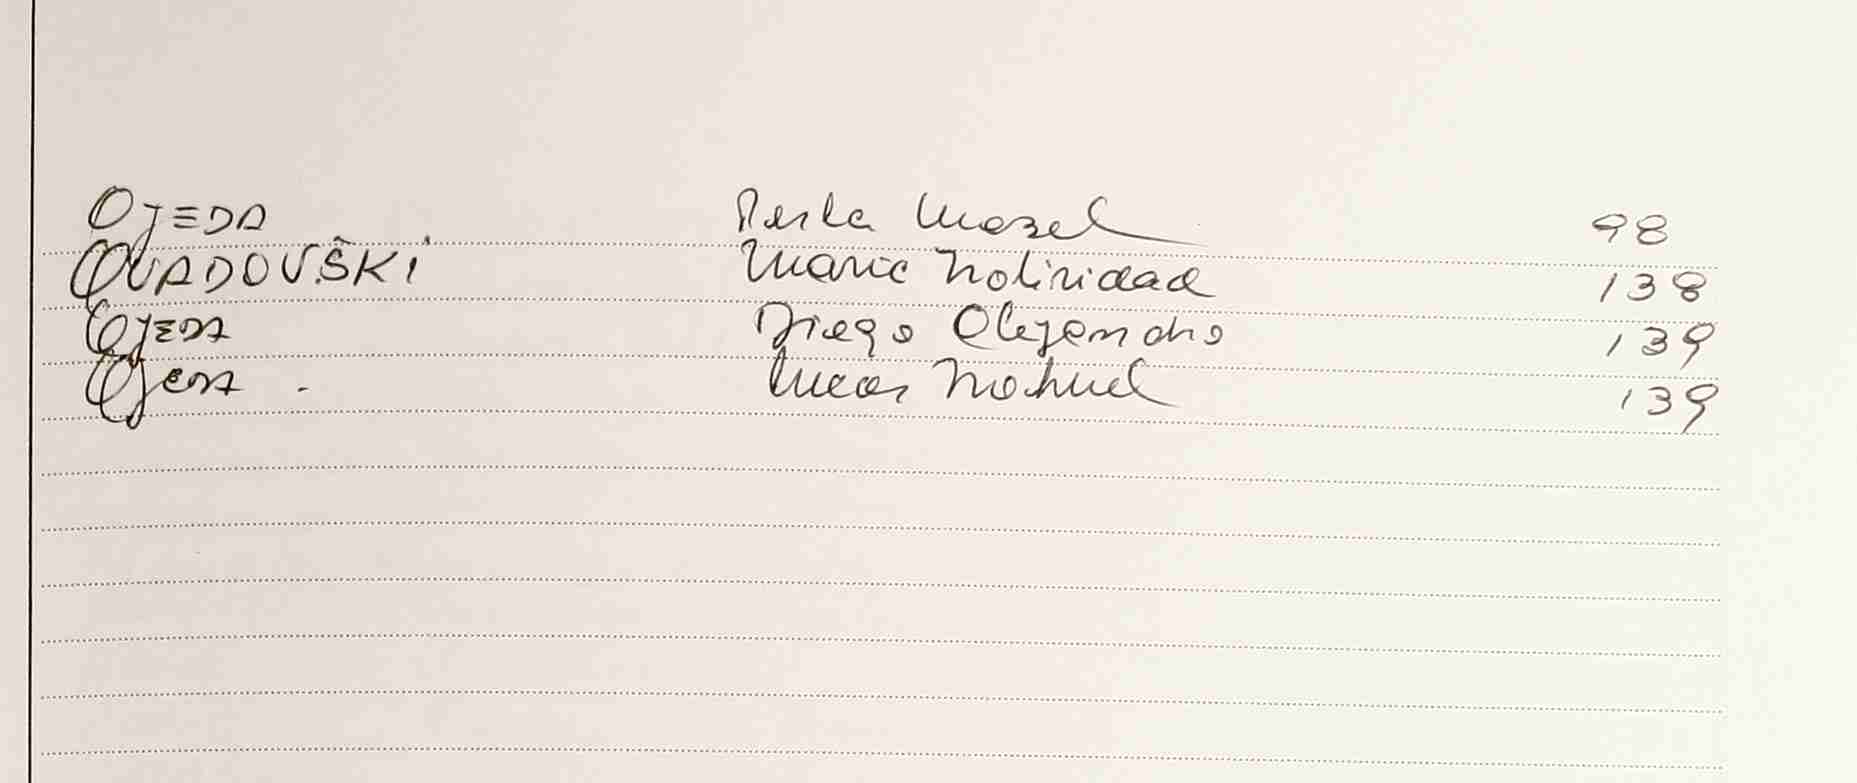 OJEDA Perla Mosel 98
OVADOVSKI Maria Natividad 138
OJEDA Diego Alejandro 139
OJEDA Lucas Nahuel 139